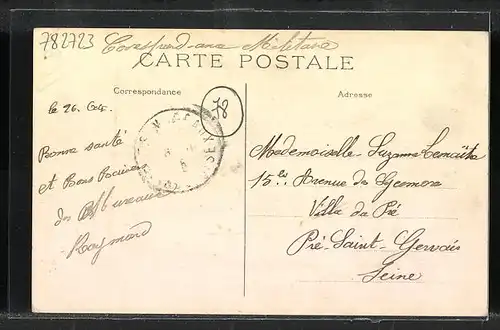 782723
Correspondance Militaire
CARTE POSTALE
Correspondance
Adresse
78
le 26 Oct.
Bonne santé
et Bons Baisers
des Mureaux
Raymond
Mademoiselle Suzanne Lemaître
15 Avenue de
Villa du Pré
Pré-Saint-Gervais
Seine